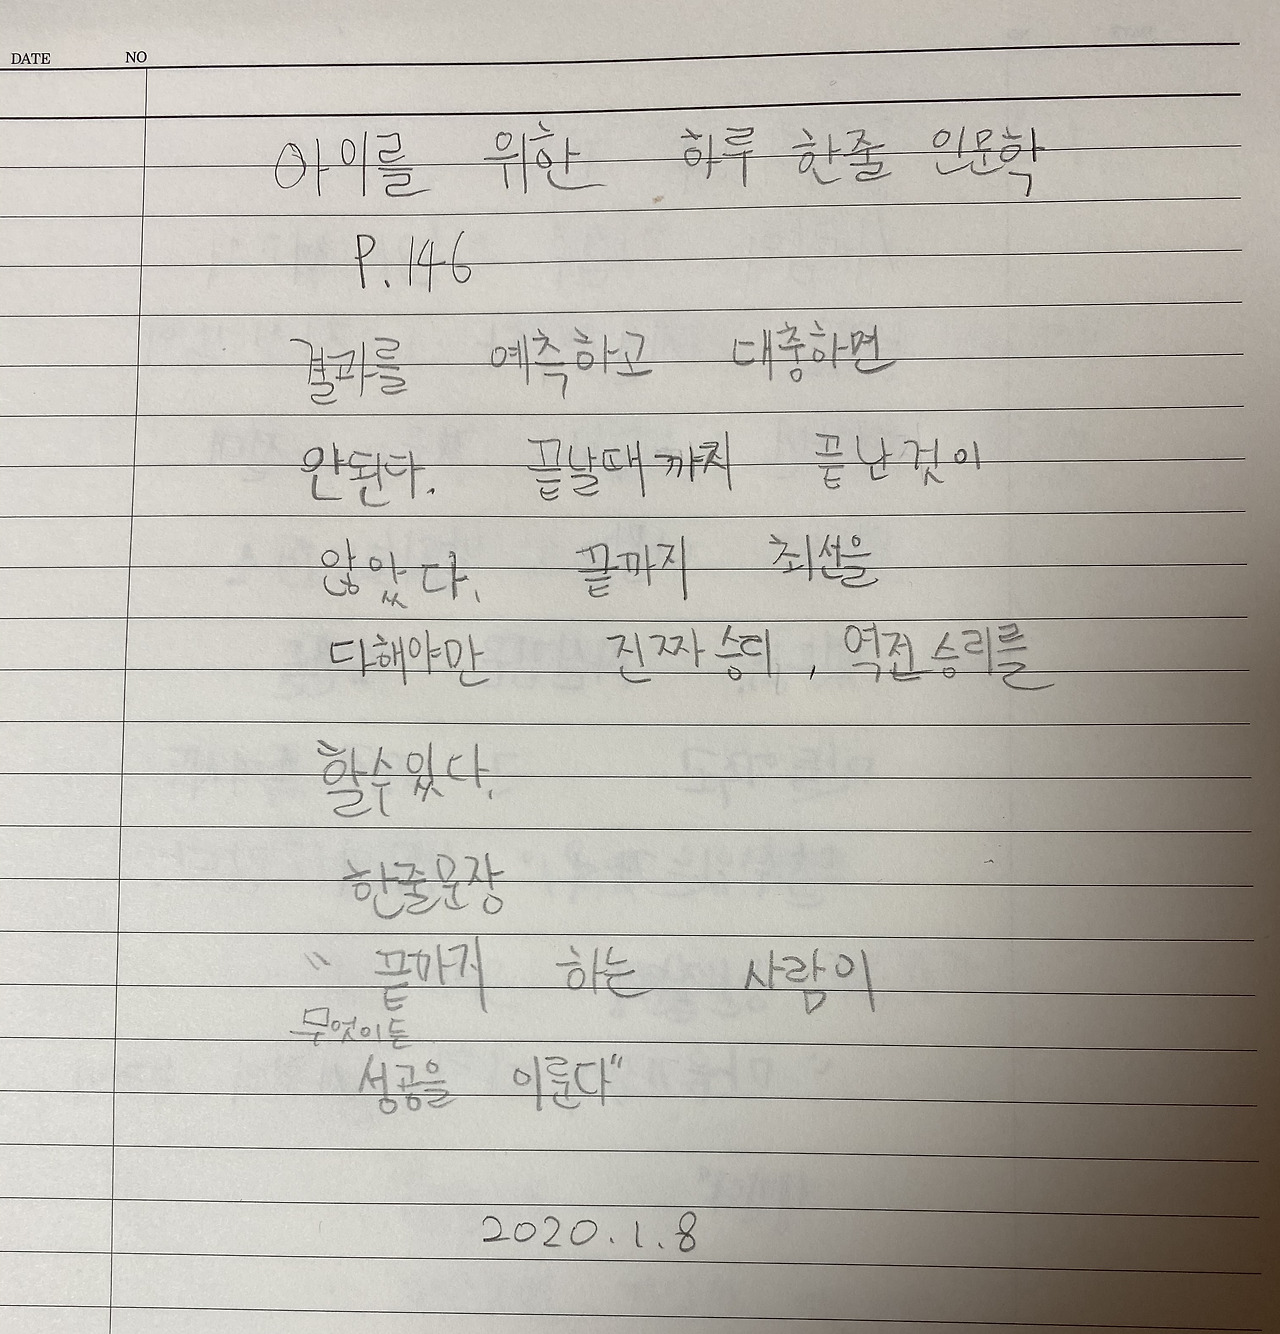 DATE NO
아이를 위한 하루 한줄 인문학
P.146
결과를 예측하고 대충하면
안된다. 끝날때까지 끝난것이
않았다. 끝까지 최선을
다해야만 진짜 승리, 역전 승리를
할수있다.
한줄문장
"끝까지 하는 사람이
무엇이든
성공을 이룬다"
2020.1.8